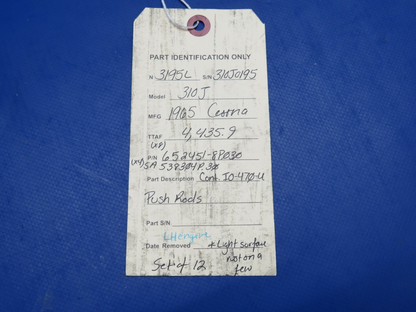 PART IDENTIFICATION ONLY
N 3195L S/N 310J0195
Model 310J
MFG 1965 Cessna
TTAF 4,435.9
(x8)
P/N 652451-8P030
(x4) SA 538304P30
Part Description Cont. IO-470-U
Push Rods
Part S/N
LH engine
Date Removed *Light surface
Set of 12 rust on a
few